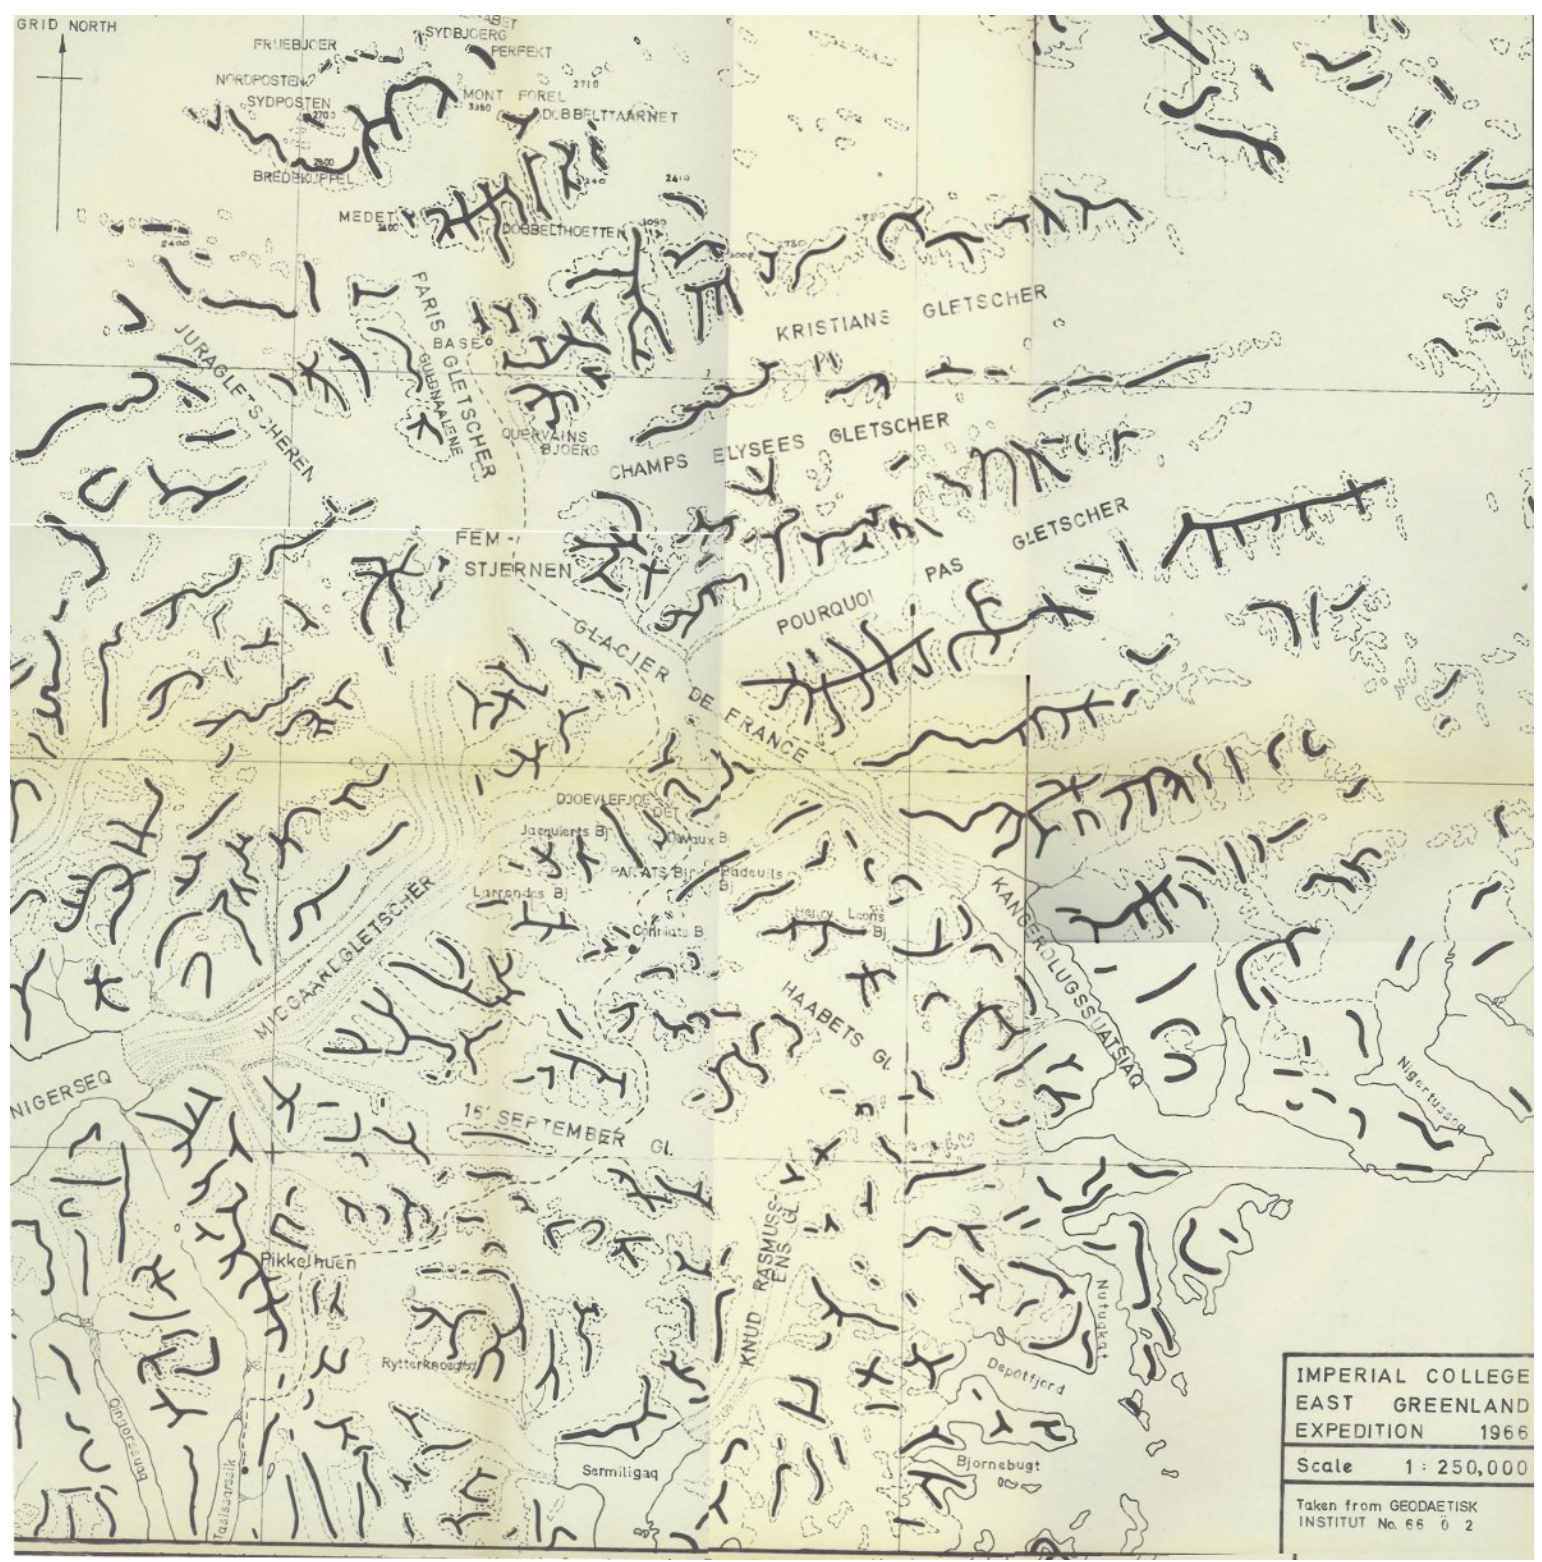 GRID NORTH
SYDBJOERG
FRUEBJOER
PERFEKT
NORDPOSTEN
2710
SYDPOSTEN
MONT FOREL
3360
2700
DOBBELTTAARNET
BREDEKUPPEL
2410
MEDET
2400
DOBBELTHOETTEN
3090
2400
PARIS GLETSCHER
KRISTIANS GLETSCHER
BASE
JURAGLETSCHEREN
GULDNAALENE
QUERVAINS
BJOERG
CHAMPS ELYSEES GLETSCHER
FEM-
STJERNEN
POURQUOI PAS GLETSCHER
GLACIER DE FRANCE
Jacquierts Bj
PARATS Bj
Badeuils
Bj
Larrendes Bj
MIDGAARDGLETSCHER
KANGERDLUGSSUATSIAQ
HAABETS GL.
NIGERSEQ
Nigertussoq
16' SEPTEMBER GL.
KNUD RASMUSS-
ENS GL.
Pikkelhuen
Nutugkat
Rytterknoegten
Depotfjord
Qingorssuaq
Tasissarssik
Sermiligaq
Bjornebugt
IMPERIAL COLLEGE
EAST GREENLAND
EXPEDITION 1966
Scale 1 : 250,000
Taken from GEODAETISK
INSTITUT No. 66 Ö 2